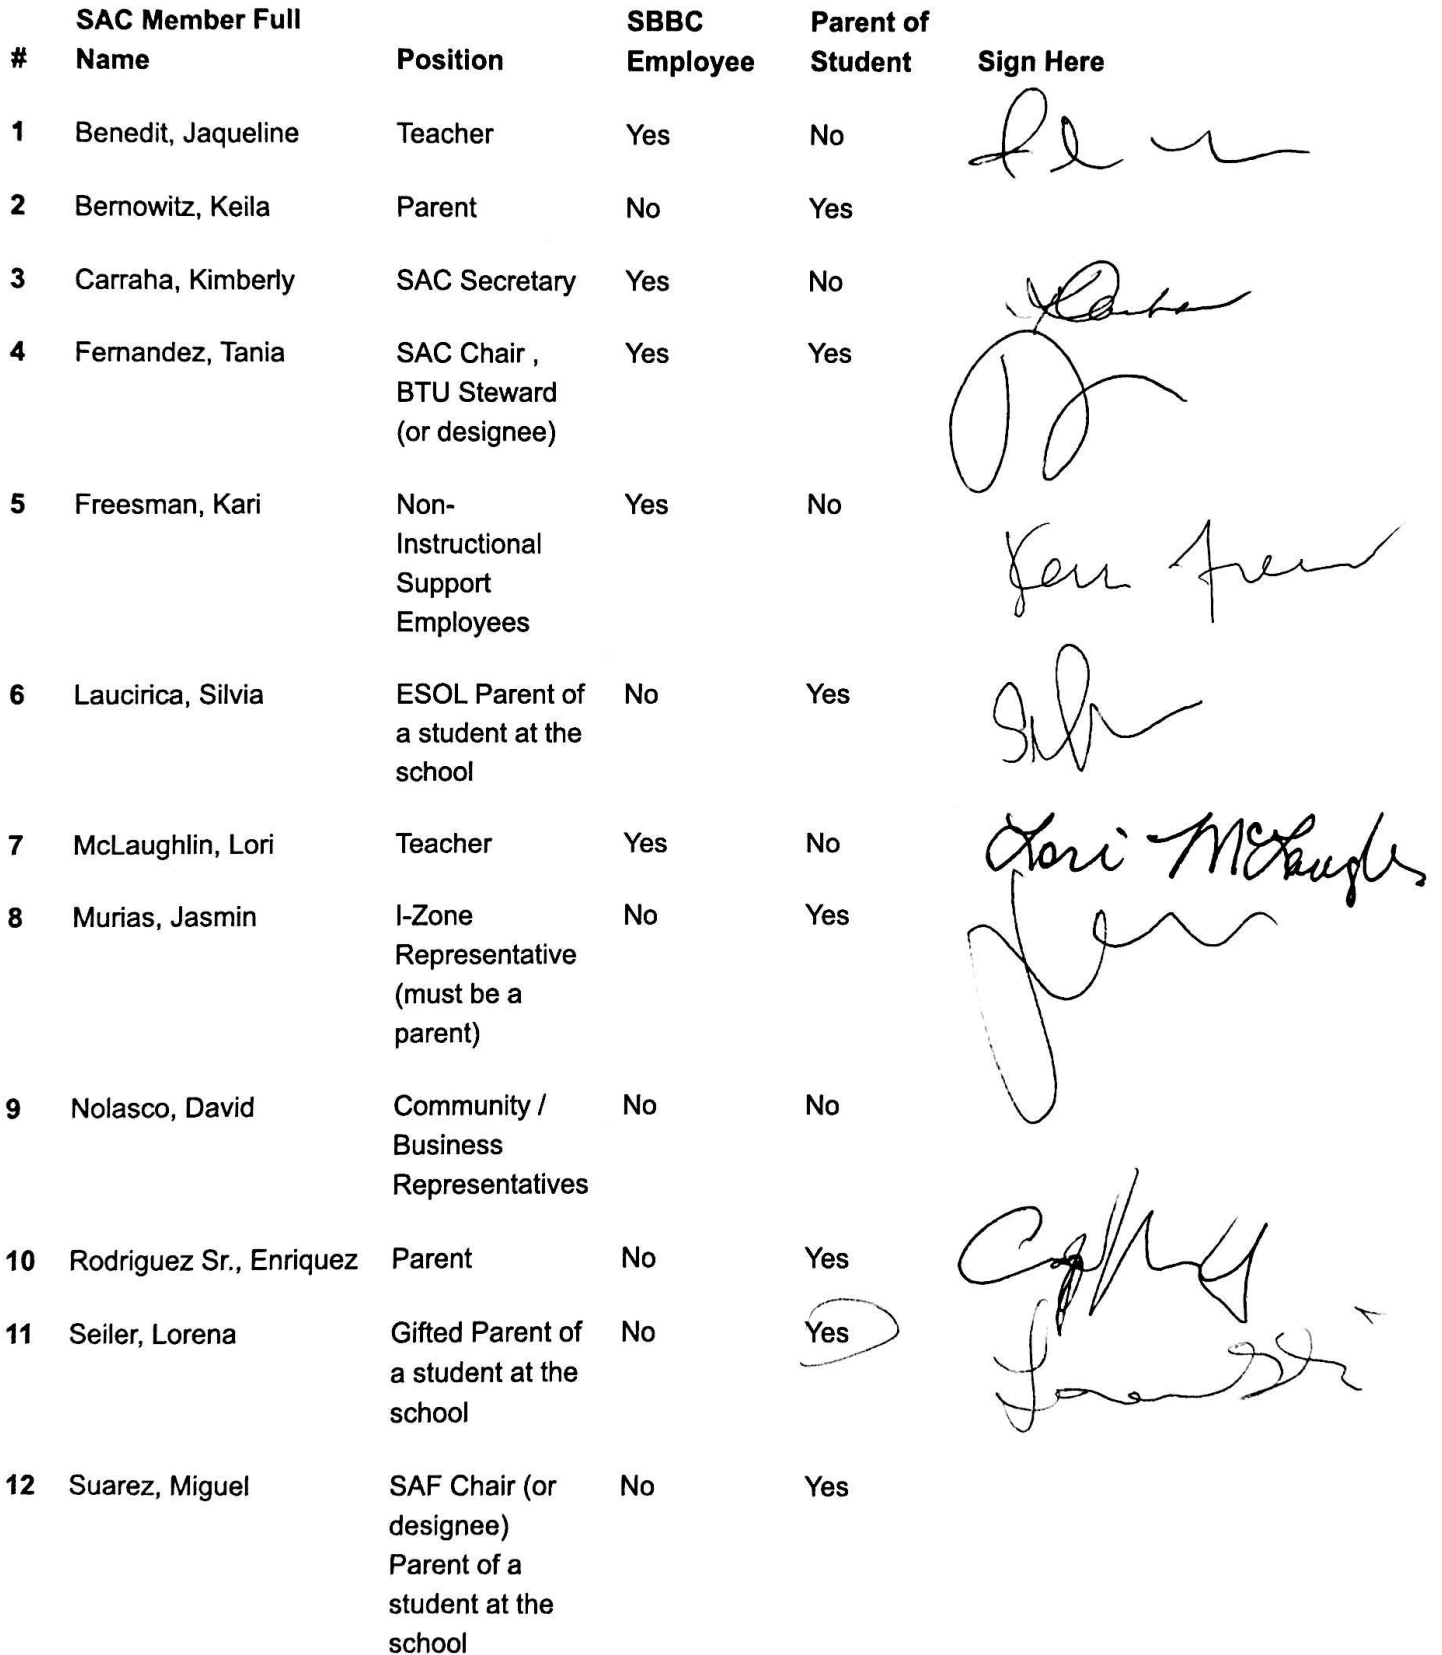 SAC Member Full SBBC Parent of
# Name Position Employee Student Sign Here
1 Benedit, Jaqueline Teacher Yes No
2 Bernowitz, Keila Parent No Yes
3 Carraha, Kimberly SAC Secretary Yes No
4 Fernandez, Tania SAC Chair , Yes Yes
BTU Steward
(or designee)
5 Freesman, Kari Non- Yes No
Instructional
Support
Employees
6 Laucirica, Silvia ESOL Parent of No Yes
a student at the
school
7 McLaughlin, Lori Teacher Yes No Lori
8 Murias, Jasmin I-Zone No Yes
Representative
(must be a
parent)
9 Nolasco, David Community / No No
Business
Representatives
10 Rodriguez Sr., Enriquez Parent No Yes
11 Seiler, Lorena Gifted Parent of No Yes
a student at the
school
12 Suarez, Miguel SAF Chair (or No Yes
designee)
Parent of a
student at the
school